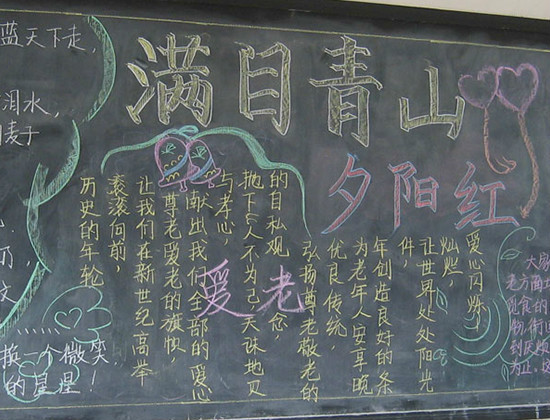 满目青山
夕阳红
蓝天下走，
泪水，
麦子
换一个微笑，
的星星！
历史的年轮
滚滚向前，
让我们在新世纪高举
尊老爱老的旗帜
献出我们全部的爱心
与孝心，
抛下“人不为己天诛地灭
的自私观念，
爱老
弘扬尊老敬老的
优良传统，
为老年人安享晚
年创造良好的条
件，
让世界处处阳光
灿烂，
爱心闪烁！
大家